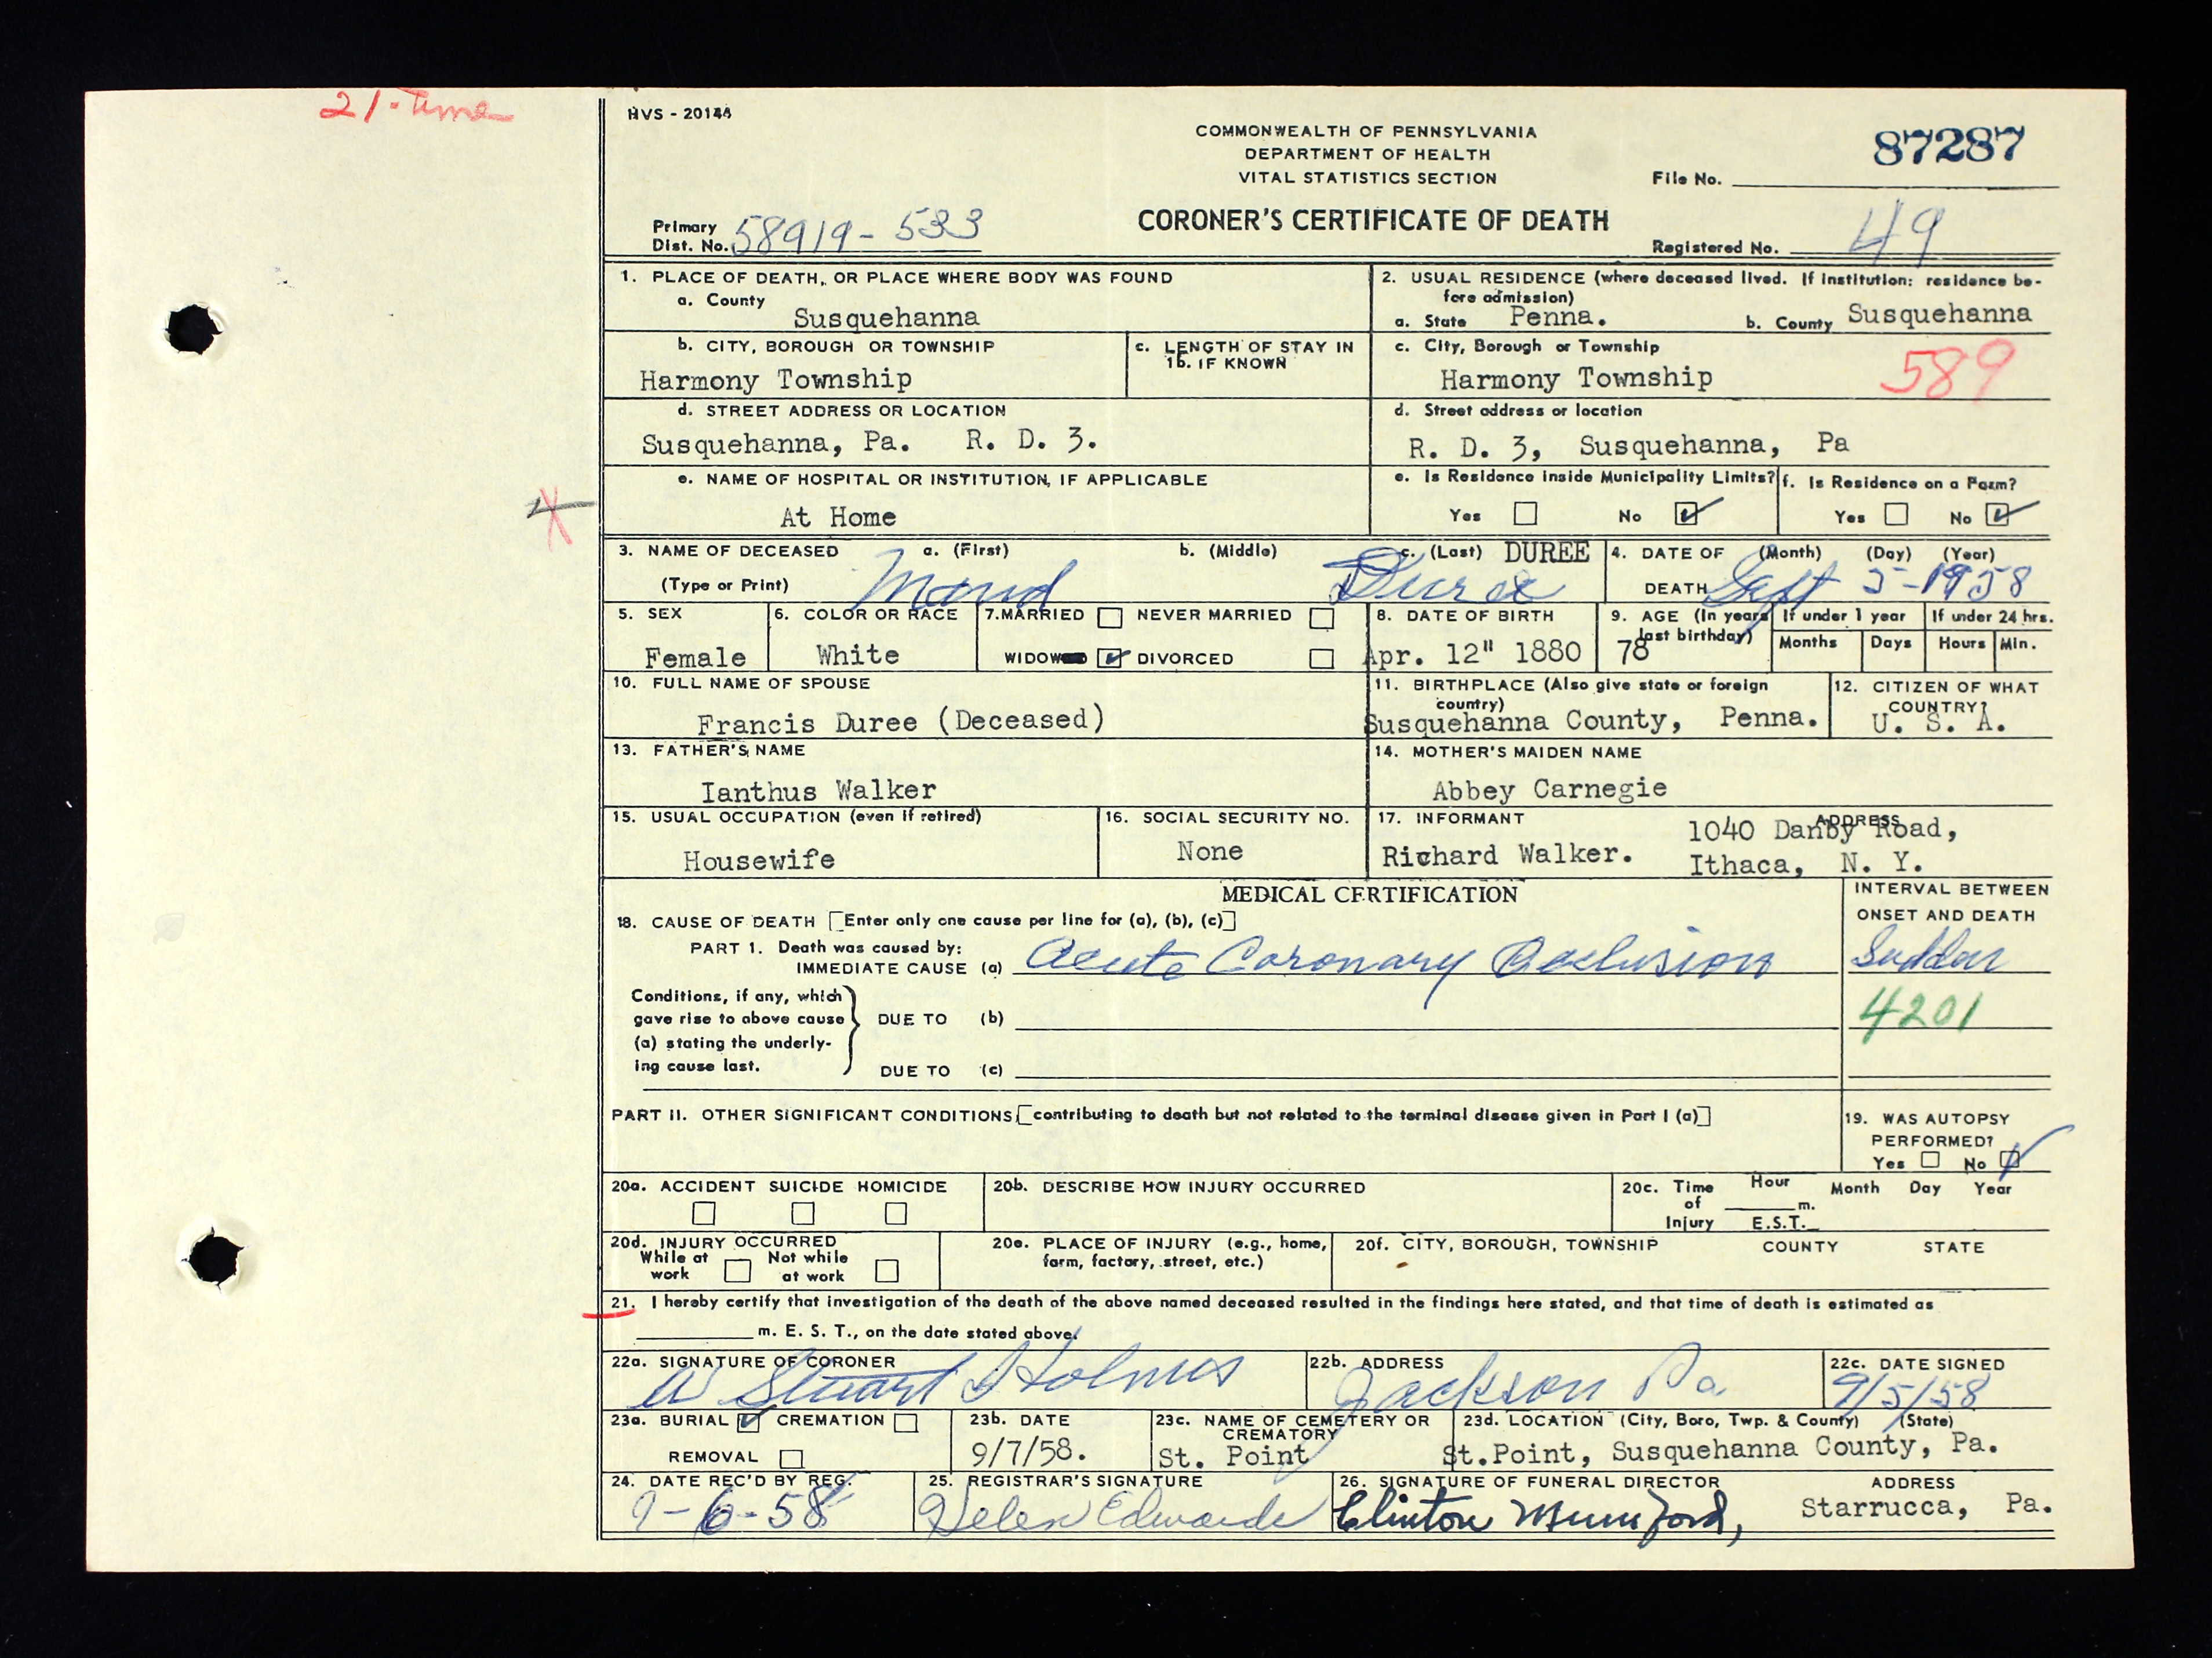 21-time
HVS - 20144
COMMONWEALTH OF PENNSYLVANIA
DEPARTMENT OF HEALTH
VITAL STATISTICS SECTION
87287
File No.
Primary
Dist. No. 58919-533
CORONER'S CERTIFICATE OF DEATH
Registered No. 49
1. PLACE OF DEATH, OR PLACE WHERE BODY WAS FOUND
a. County
Susquehanna
2. USUAL RESIDENCE (where deceased lived. If institution: residence be-
fore admission)
a. State Penna. b. County Susquehanna
b. CITY, BOROUGH OR TOWNSHIP
Harmony Township
c. LENGTH OF STAY IN
1b. IF KNOWN
c. City, Borough or Township
Harmony Township
589
d. STREET ADDRESS OR LOCATION
Susquehanna, Pa. R. D. 3.
d. Street address or location
R. D. 3, Susquehanna, Pa
e. NAME OF HOSPITAL OR INSTITUTION, IF APPLICABLE
At Home
e. Is Residence inside Municipality Limits?
Yes No
f. Is Residence on a Farm?
Yes No
3. NAME OF DECEASED a. (First) b. (Middle) c. (Last) DUREE
(Type or Print) Maud Duree
4. DATE OF (Month) (Day) (Year)
DEATH Sept 5-1958
5. SEX
Female
6. COLOR OR RACE
White
7. MARRIED NEVER MARRIED
WIDOW DIVORCED
8. DATE OF BIRTH
Apr. 12" 1880
9. AGE (In years
last birthday)
78
If under 1 year
Months Days
If under 24 hrs.
Hours Min.
10. FULL NAME OF SPOUSE
Francis Duree (Deceased)
11. BIRTHPLACE (Also give state or foreign
country)
Susquehanna County, Penna.
12. CITIZEN OF WHAT
COUNTRY?
U. S. A.
13. FATHER'S NAME
Ianthus Walker
14. MOTHER'S MAIDEN NAME
Abbey Carnegie
15. USUAL OCCUPATION (even if retired)
Housewife
16. SOCIAL SECURITY NO.
None
17. INFORMANT ADDRESS
Richard Walker.
1040 Danby Road,
Ithaca, N. Y.
MEDICAL CERTIFICATION
INTERVAL BETWEEN
ONSET AND DEATH
18. CAUSE OF DEATH [Enter only one cause per line for (a), (b), (c)]
PART 1. Death was caused by:
IMMEDIATE CAUSE (a) Acute Coronary Occlusion
Sudden
4201
Conditions, if any, which
gave rise to above cause
(a) stating the underly-
ing cause last.
DUE TO (b)
DUE TO (c)
PART II. OTHER SIGNIFICANT CONDITIONS [contributing to death but not related to the terminal disease given in Part I (a)]
19. WAS AUTOPSY
PERFORMED?
Yes No
20a. ACCIDENT SUICIDE HOMICIDE
20b. DESCRIBE HOW INJURY OCCURRED
20c. Time
of
Injury
Hour
m.
E.S.T.
Month Day Year
20d. INJURY OCCURRED
While at
work
Not while
at work
20e. PLACE OF INJURY (e.g., home,
farm, factory, street, etc.)
20f. CITY, BOROUGH, TOWNSHIP COUNTY STATE
21. I hereby certify that investigation of the death of the above named deceased resulted in the findings here stated, and that time of death is estimated as
m. E. S. T., on the date stated above.
22a. SIGNATURE OF CORONER
W Stuart Holmes
22b. ADDRESS
Jackson Pa
22c. DATE SIGNED
9/5/58
23a. BURIAL CREMATION
REMOVAL
23b. DATE
9/7/58.
23c. NAME OF CEMETERY OR
CREMATORY
St. Point
23d. LOCATION (City, Boro, Twp. & County) (State)
St.Point, Susquehanna County, Pa.
24. DATE REC'D BY REG.
9-6-58
25. REGISTRAR'S SIGNATURE
Helen Edwards
26. SIGNATURE OF FUNERAL DIRECTOR
Clinton Mumford,
ADDRESS
Starrucca, Pa.